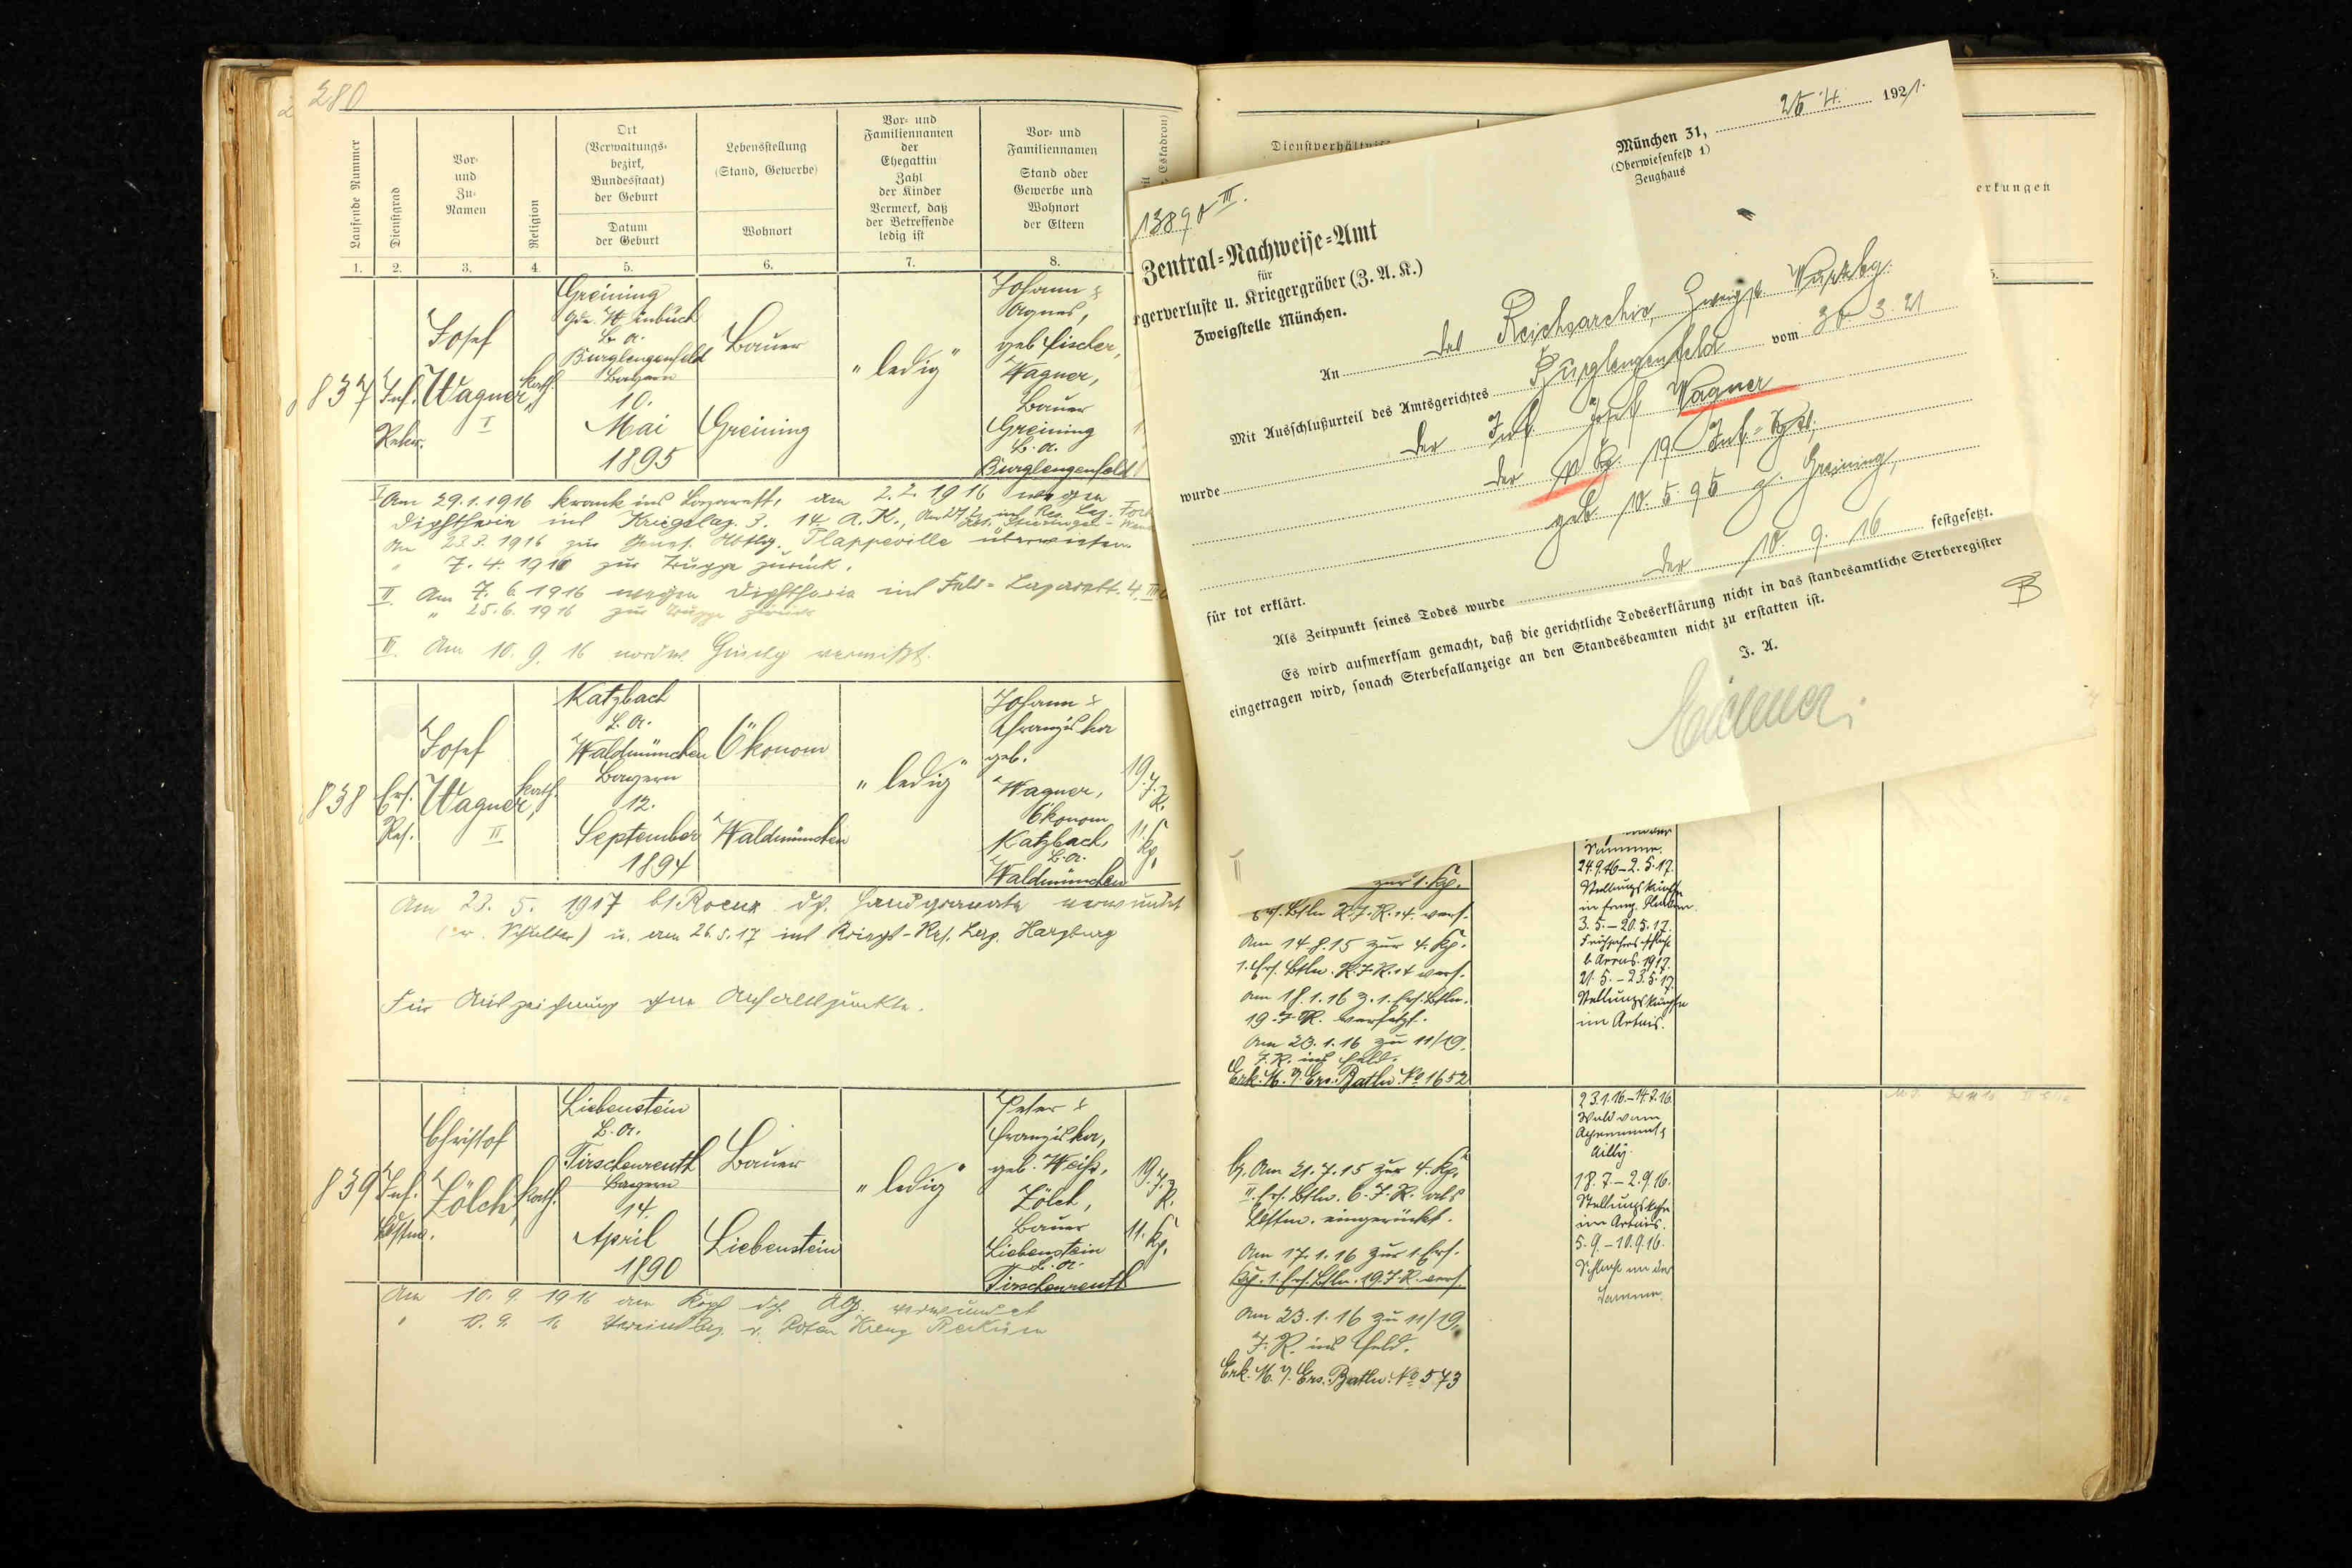 280
Laufende Nummer
Dienstgrad
Vor-
und
Zu-
Namen
Religion
Ort
(Verwaltungs-
bezirk,
Bundesstaat)
der Geburt
Datum
der Geburt
Lebensstellung
(Stand, Gewerbe)
Wohnort
Vor- und
Familiennamen
der
Ehegattin
Zahl
der Kinder
Vermerk, daß
der Betreffende
ledig ist
Vor- und
Familiennamen
Stand oder
Gewerbe und
Wohnort
der Eltern
1. 2. 3. 4. 5. 6. 7. 8.
837
Inf.
Rekr.
Josef
Wagner,
I
kath.
Greining
B. A.
Burglengenfeld
Bayern
10.
Mai
1895
Bauer
Greining
"ledig"
Johann &
Agnes,
geb. Fischer,
Wagner,
Bauer
Greining
B. A.
Burglengenfeld
I Am 29.1.1916 krank ins Lazarett, am 2.2.1916 wegen
Diphtherie ins Kriegslaz. 3. 14. A.K.,
Am 23.3.1916 zur Genes. Abtlg. Plappeville überwiesen
" 7.4.1916 zur Truppe zurück.
II. Am 7.6.1916 wegen Diphtherie ins Feld-Lazarett. 4.
" 25.6.1916 zur Truppe zurück
III. Am 10.9.16 nordw. Ginchy vermißt.
838
Ers.
Res.
Josef
Wagner,
II
kath.
Katzbach
B. A.
Waldmünchen
Bayern
12.
September
1894
Ökonom
Waldmünchen
"ledig"
Johann &
Franziska
geb.
Wagner,
Ökonom
Katzbach,
B. A.
Waldmünchen
19. J.
R.
11. Kp.
Am 23.5.1917 bt. Roeux dch. Handgranate verwundet
(r. Schulter) u. am 26.5.17 ins Kriegs-Res. Laz. Harzburg
Für Aufzeichnung ohne Anhaltspunkte.
839
Inf.
Ldstm.
Christof
Zölch,
kath.
Liebenstein
B. A.
Tirschenreuth
Bayern
14.
April
1890
Bauer
Liebenstein
"ledig"
Peter &
Franziska,
geb. Weiß,
Zölch,
Bauer
Liebenstein
B. A.
Tirschenreuth
19. J.
R.
11. Kp.
Am 10.9.1916 am Kopf dch. AG. verwundet
" 10.9.16 Vereinslaz. v. Roten Kreuz
13890 III.
München 31, 25 4. 1921.
(Oberwiesenfeld 1)
Zeughaus
Zentral-Nachweise-Amt
für
gerverluste u. Kriegergräber (Z. A. K.)
Zweigstelle München.
An das Reichsarchiv, Zweigst. Würzbg.
Mit Ausschlußurteil des Amtsgerichtes Burglengenfeld vom 30.3.21
wurde der Inf. Josef Wagner
der 11. Kp. 19. Inf.-Rgt.,
geb. 10.5.95 z. Greining,
für tot erklärt.
Als Zeitpunkt seines Todes wurde der 10.9.16 festgesetzt.
Es wird aufmerksam gemacht, daß die gerichtliche Todeserklärung nicht in das standesamtliche Sterberegister
eingetragen wird, sonach Sterbefallanzeige an den Standesbeamten nicht zu erstatten ist.
J. A.
Dienstverhältniss
erkungen
zur 1. Kp.
Ers. Btln. R.J.R. 14. vers.
Am 14.8.15 zur 4. Kp.
1. Ers. Btln. R.J.R. 14 vers.
Am 18.1.16 z. 1. Ers. Btln.
19. J.R. versetzt.
Am 23.1.16 zu 11/19.
J.R. ins Feld.
Erk. M. I. Ers. Batln. No 1652
Somme.
24.9.16–2.5.17.
Stellungskämpfe
in franz. Flandern.
3.5.–20.5.17.
Frühjahrsschlacht
b. Arras. 1917.
21.5.–23.5.17.
Stellungskämpfe
im Artois.
b. Am 21.7.15 zur 4. Kp.
II. Ers. Btln. 6. J.R. als
Ldstm. eingerückt.
Am 17.1.16 zur 1. Ers.
Kp. 1. Ers. Btln. 19. J.R. vers.
Am 23.1.16 zu 11/19.
J.R. ins Feld.
Erk. M. I. Ers. Batln. No 573
23.1.16.–14.7.16.
Wald von
Apremont &
Ailly.
18.7.–2.9.16.
Stellungskpfe
im Artois.
5.9.–10.9.16.
Schlacht an der
Somme.